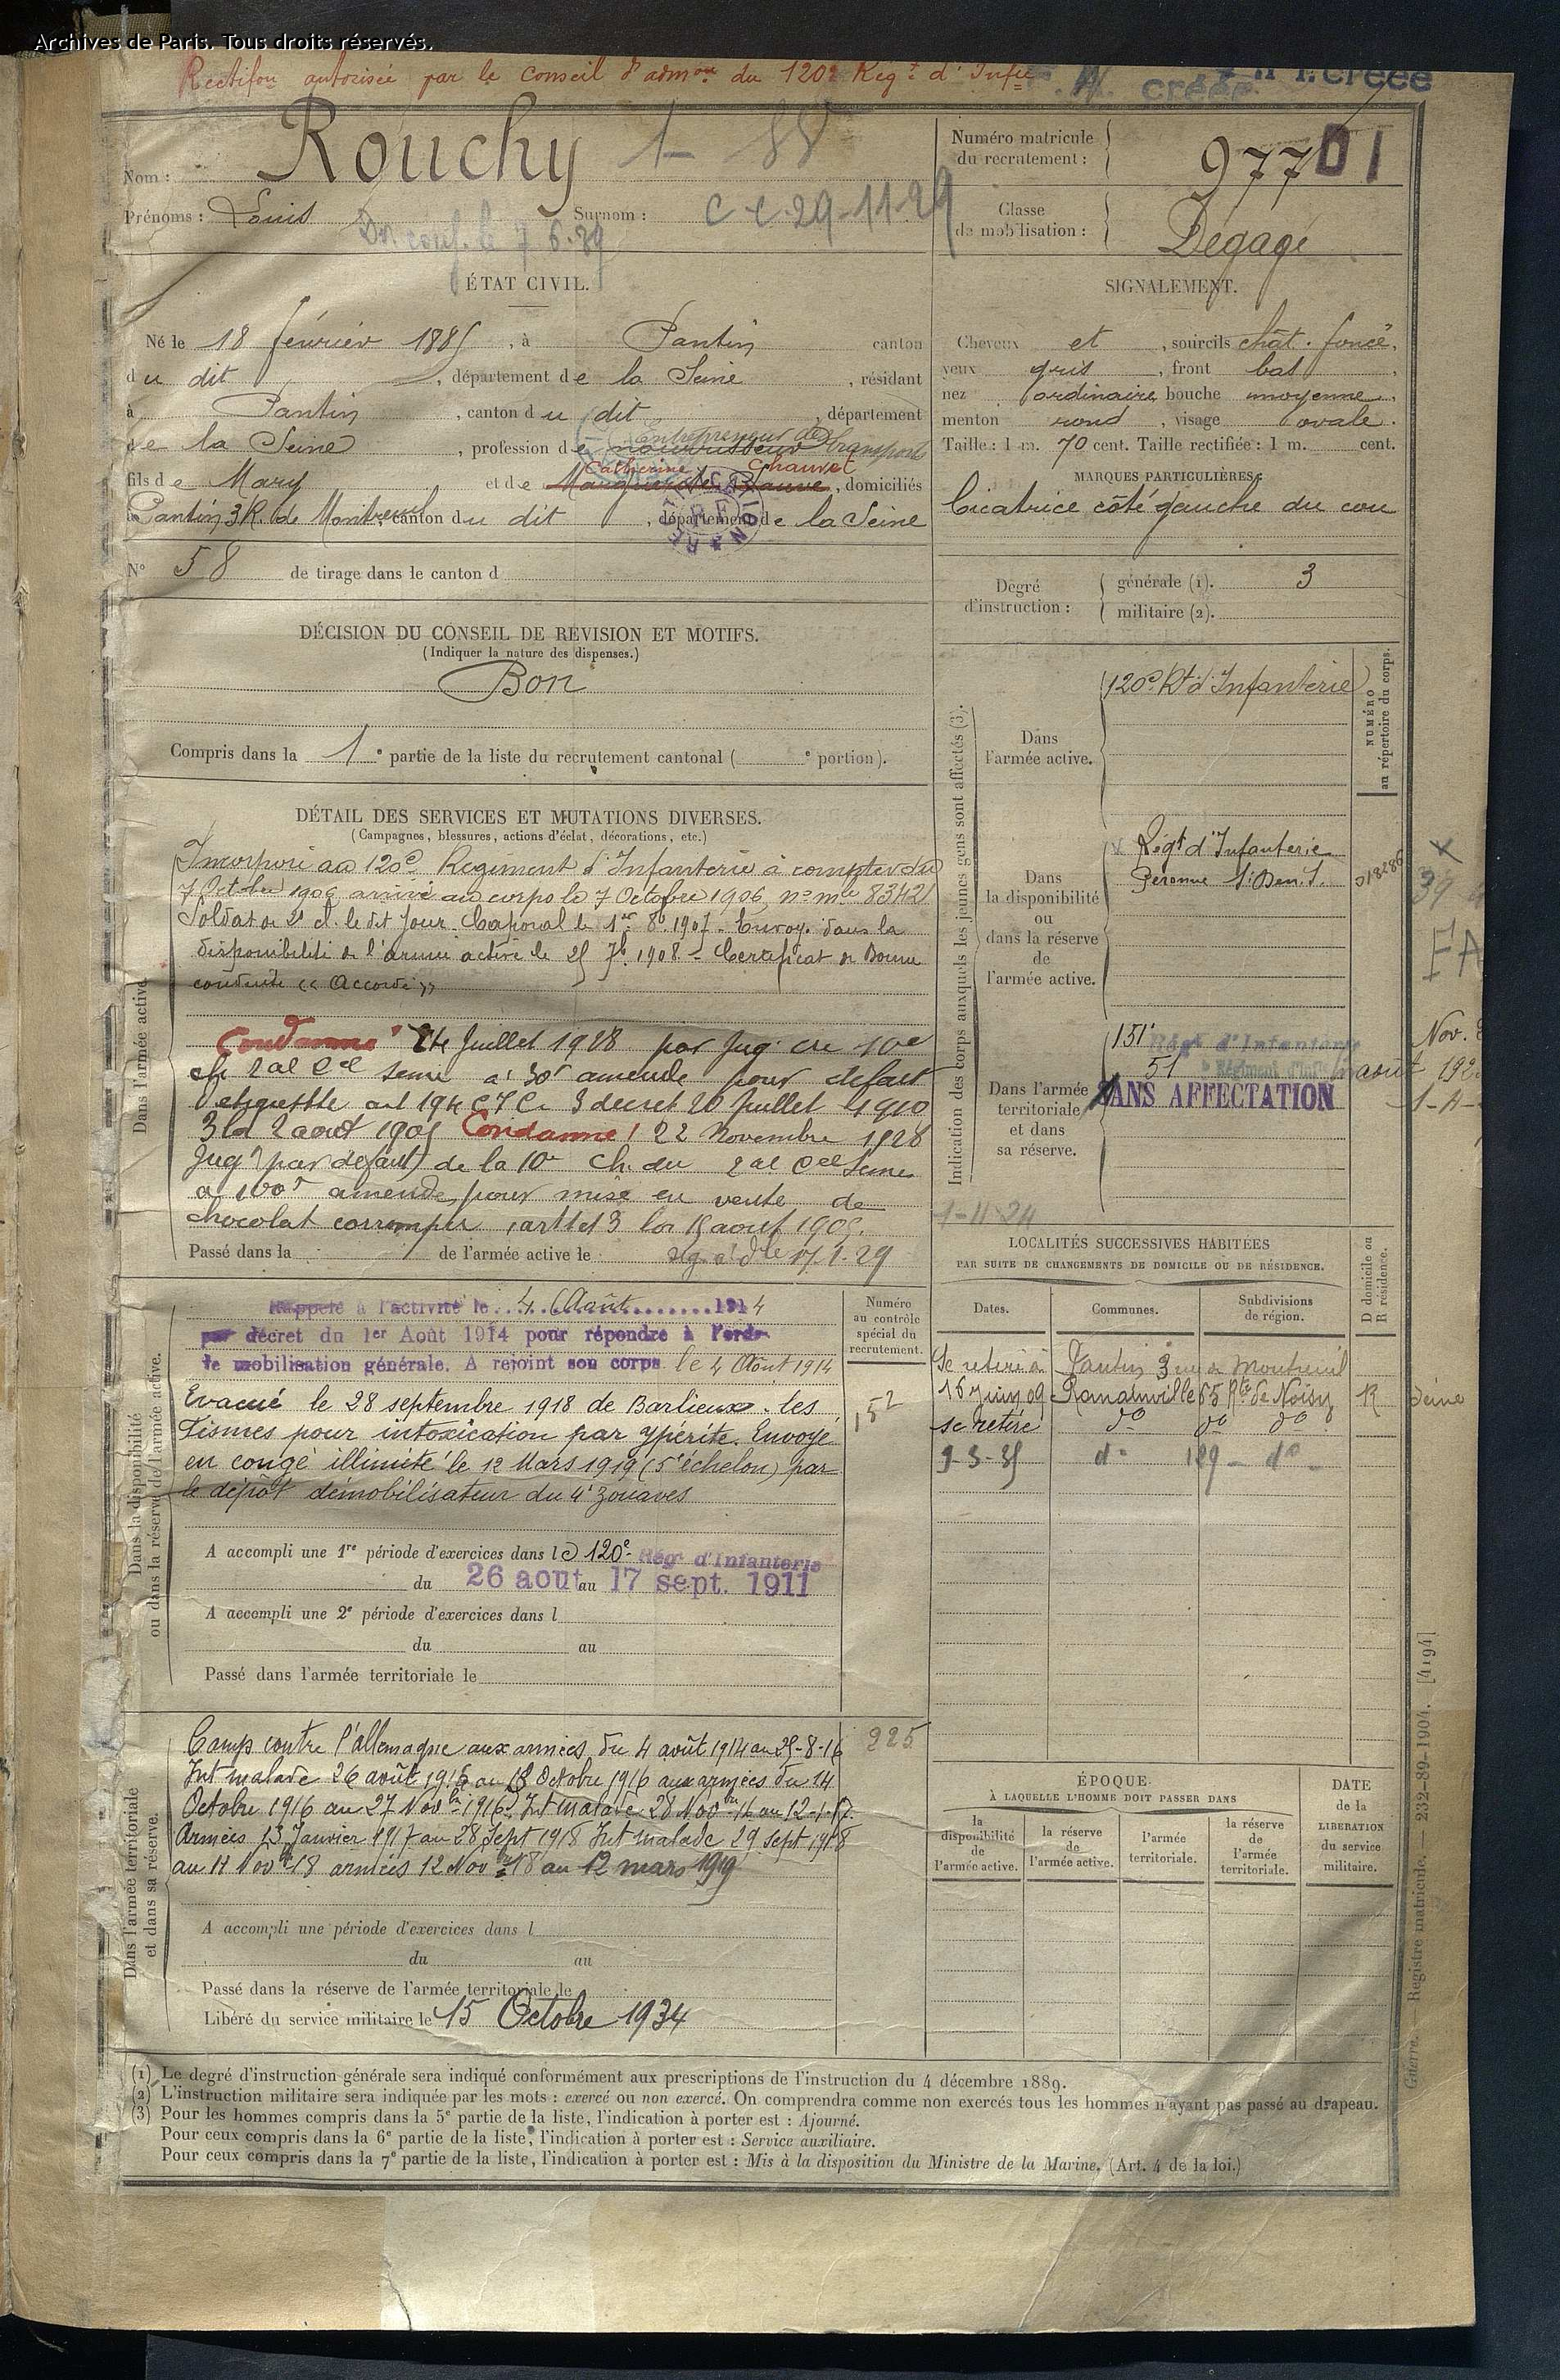 Archives de Paris. Tous droits réservés.
Rectifon autorisée par le Conseil d'admon du 120e Régt d'Infie
Nom : Rouchy
Numéro matricule du recrutement : 977
D1
Prénoms : Louis
Surnom :
C-C. 29-11-29
Classe de mobilisation : Dégagé
ÉTAT CIVIL.
Né le 18 février 1885, à Pantin canton
du dit, département de la Seine, résidant
à Pantin, canton du dit, département
de la Seine, profession de nourrisseur
Entrepreneur de transports
Catherine Chauvet
fils de Mary et de Marguerite Chauve, domiciliés
à Pantin 3 R. de Montreuil, canton du dit, département de la Seine
N° 58 de tirage dans le canton d
SIGNALEMENT.
Cheveux et, sourcils chât. foncé,
yeux gris, front bas,
nez ordinaire, bouche moyenne,
menton rond, visage ovale.
Taille : 1 m. 70 cent. Taille rectifiée : 1 m. cent.
MARQUES PARTICULIÈRES :
Cicatrice côté gauche du cou
Degré d'instruction : générale (1). 3
militaire (2).
DÉCISION DU CONSEIL DE RÉVISION ET MOTIFS.
(Indiquer la nature des dispenses.)
Bon
Compris dans la 1e partie de la liste du recrutement cantonal ( e portion).
DÉTAIL DES SERVICES ET MUTATIONS DIVERSES.
(Campagnes, blessures, actions d'éclat, décorations, etc.)
Dans l'armée active.
Incorporé au 120e Régiment d'Infanterie à compter du
7 Octobre 1906 arrivé au corps le 7 Octobre 1906, no mle 83421
Soldat de 2e cl. le dit jour. Caporal le 1er 8b 1907. Envoyé dans la
disponibilité de l'armée active le 25 7b. 1908 - Certificat de Bonne
conduite « Accordé »
Condamné 24 Juillet 1928 par Jug. cre 10e
ch. Seine à 30f amende pour défaut
étiquette art 3 décret 20 Juillet 1910
Condamné ! 22 Novembre 1928
Jugt (par défaut) de la 10e Ch. du Seine
à 100f amende pour mise en vente de
chocolat corrompu, art 1 et 3 loi août 1905.
Passé dans la de l'armée active le
17-1-29
Indication des corps auxquels les jeunes gens sont affectés (3).
NUMÉRO au répertoire du corps.
Dans l'armée active.
120e Rt d'Infanterie
Dans la disponibilité ou dans la réserve de l'armée active.
Régt d'Infanterie
Peronne St Denis.
Dans l'armée territoriale et dans sa réserve.
151e Régt d'Infanterie
51 Régiment d'Inf
SANS AFFECTATION
1-11-24
Dans la disponibilité ou dans la réserve de l'armée active.
Rappelé à l'activité le 4 Août 1914
par décret du 1er Août 1914 pour répondre à l'ordre
de mobilisation générale. A rejoint son corps le 4 Août 1914
Evacué le 28 septembre 1918 de Barlieux-les
Fismes pour intoxication par ypérite. Envoyé
en congé illimité le 12 Mars 1919 (5e échelon) par
le dépôt démobilisateur du 4e Zouaves
A accompli une 1re période d'exercices dans le 120e Régt d'Infanterie
du 26 aout au 17 sept. 1911
A accompli une 2e période d'exercices dans l
du au
Passé dans l'armée territoriale le
Numéro au contrôle spécial du recrutement.
LOCALITÉS SUCCESSIVES HABITÉES
PAR SUITE DE CHANGEMENTS DE DOMICILE OU DE RÉSIDENCE.
Dates. Communes. Subdivisions de région. D domicile ou R résidence.
Se retire à Pantin 3 rue de Montreuil
16 Juin 09 Romainville 65 Rte de Noisy R Seine
se retire do do do
9-3-35 do 129 - do -
Dans l'armée territoriale et dans sa réserve.
Camp contre l'allemagne aux armées du 4 août 1914 au 25-8-16
Int malade 26 août 1916 au 13 Octobre 1916 aux armées du 14
Octobre 1916 au 27 Novbre 1916. Int malade 28 Novbre 16 au 12-1-17.
Armées 13 Janvier 1917 au 28 Sept 1918 Int malade 29 sept 1918
au 11 Novbre 18 armées 12 Novbre 18 au 12 mars 1919
225
A accompli une période d'exercices dans l
du au
Passé dans la réserve de l'armée territoriale le
Libéré du service militaire le 15 Octobre 1934
ÉPOQUE
À LAQUELLE L'HOMME DOIT PASSER DANS
la disponibilité de l'armée active.
la réserve de l'armée active.
l'armée territoriale.
la réserve de l'armée territoriale.
DATE de la LIBÉRATION du service militaire.
(1) Le degré d'instruction générale sera indiqué conformément aux prescriptions de l'instruction du 4 décembre 1889.
(2) L'instruction militaire sera indiquée par les mots : exercé ou non exercé. On comprendra comme non exercés tous les hommes n'ayant pas passé au drapeau.
(3) Pour les hommes compris dans la 5e partie de la liste, l'indication à porter est : Ajourné.
Pour ceux compris dans la 6e partie de la liste, l'indication à porter est : Service auxiliaire.
Pour ceux compris dans la 7e partie de la liste, l'indication à porter est : Mis à la disposition du Ministre de la Marine. (Art. 4 de la loi.)
Guerre. Registre matricule. — 232-89-1904. [4194]